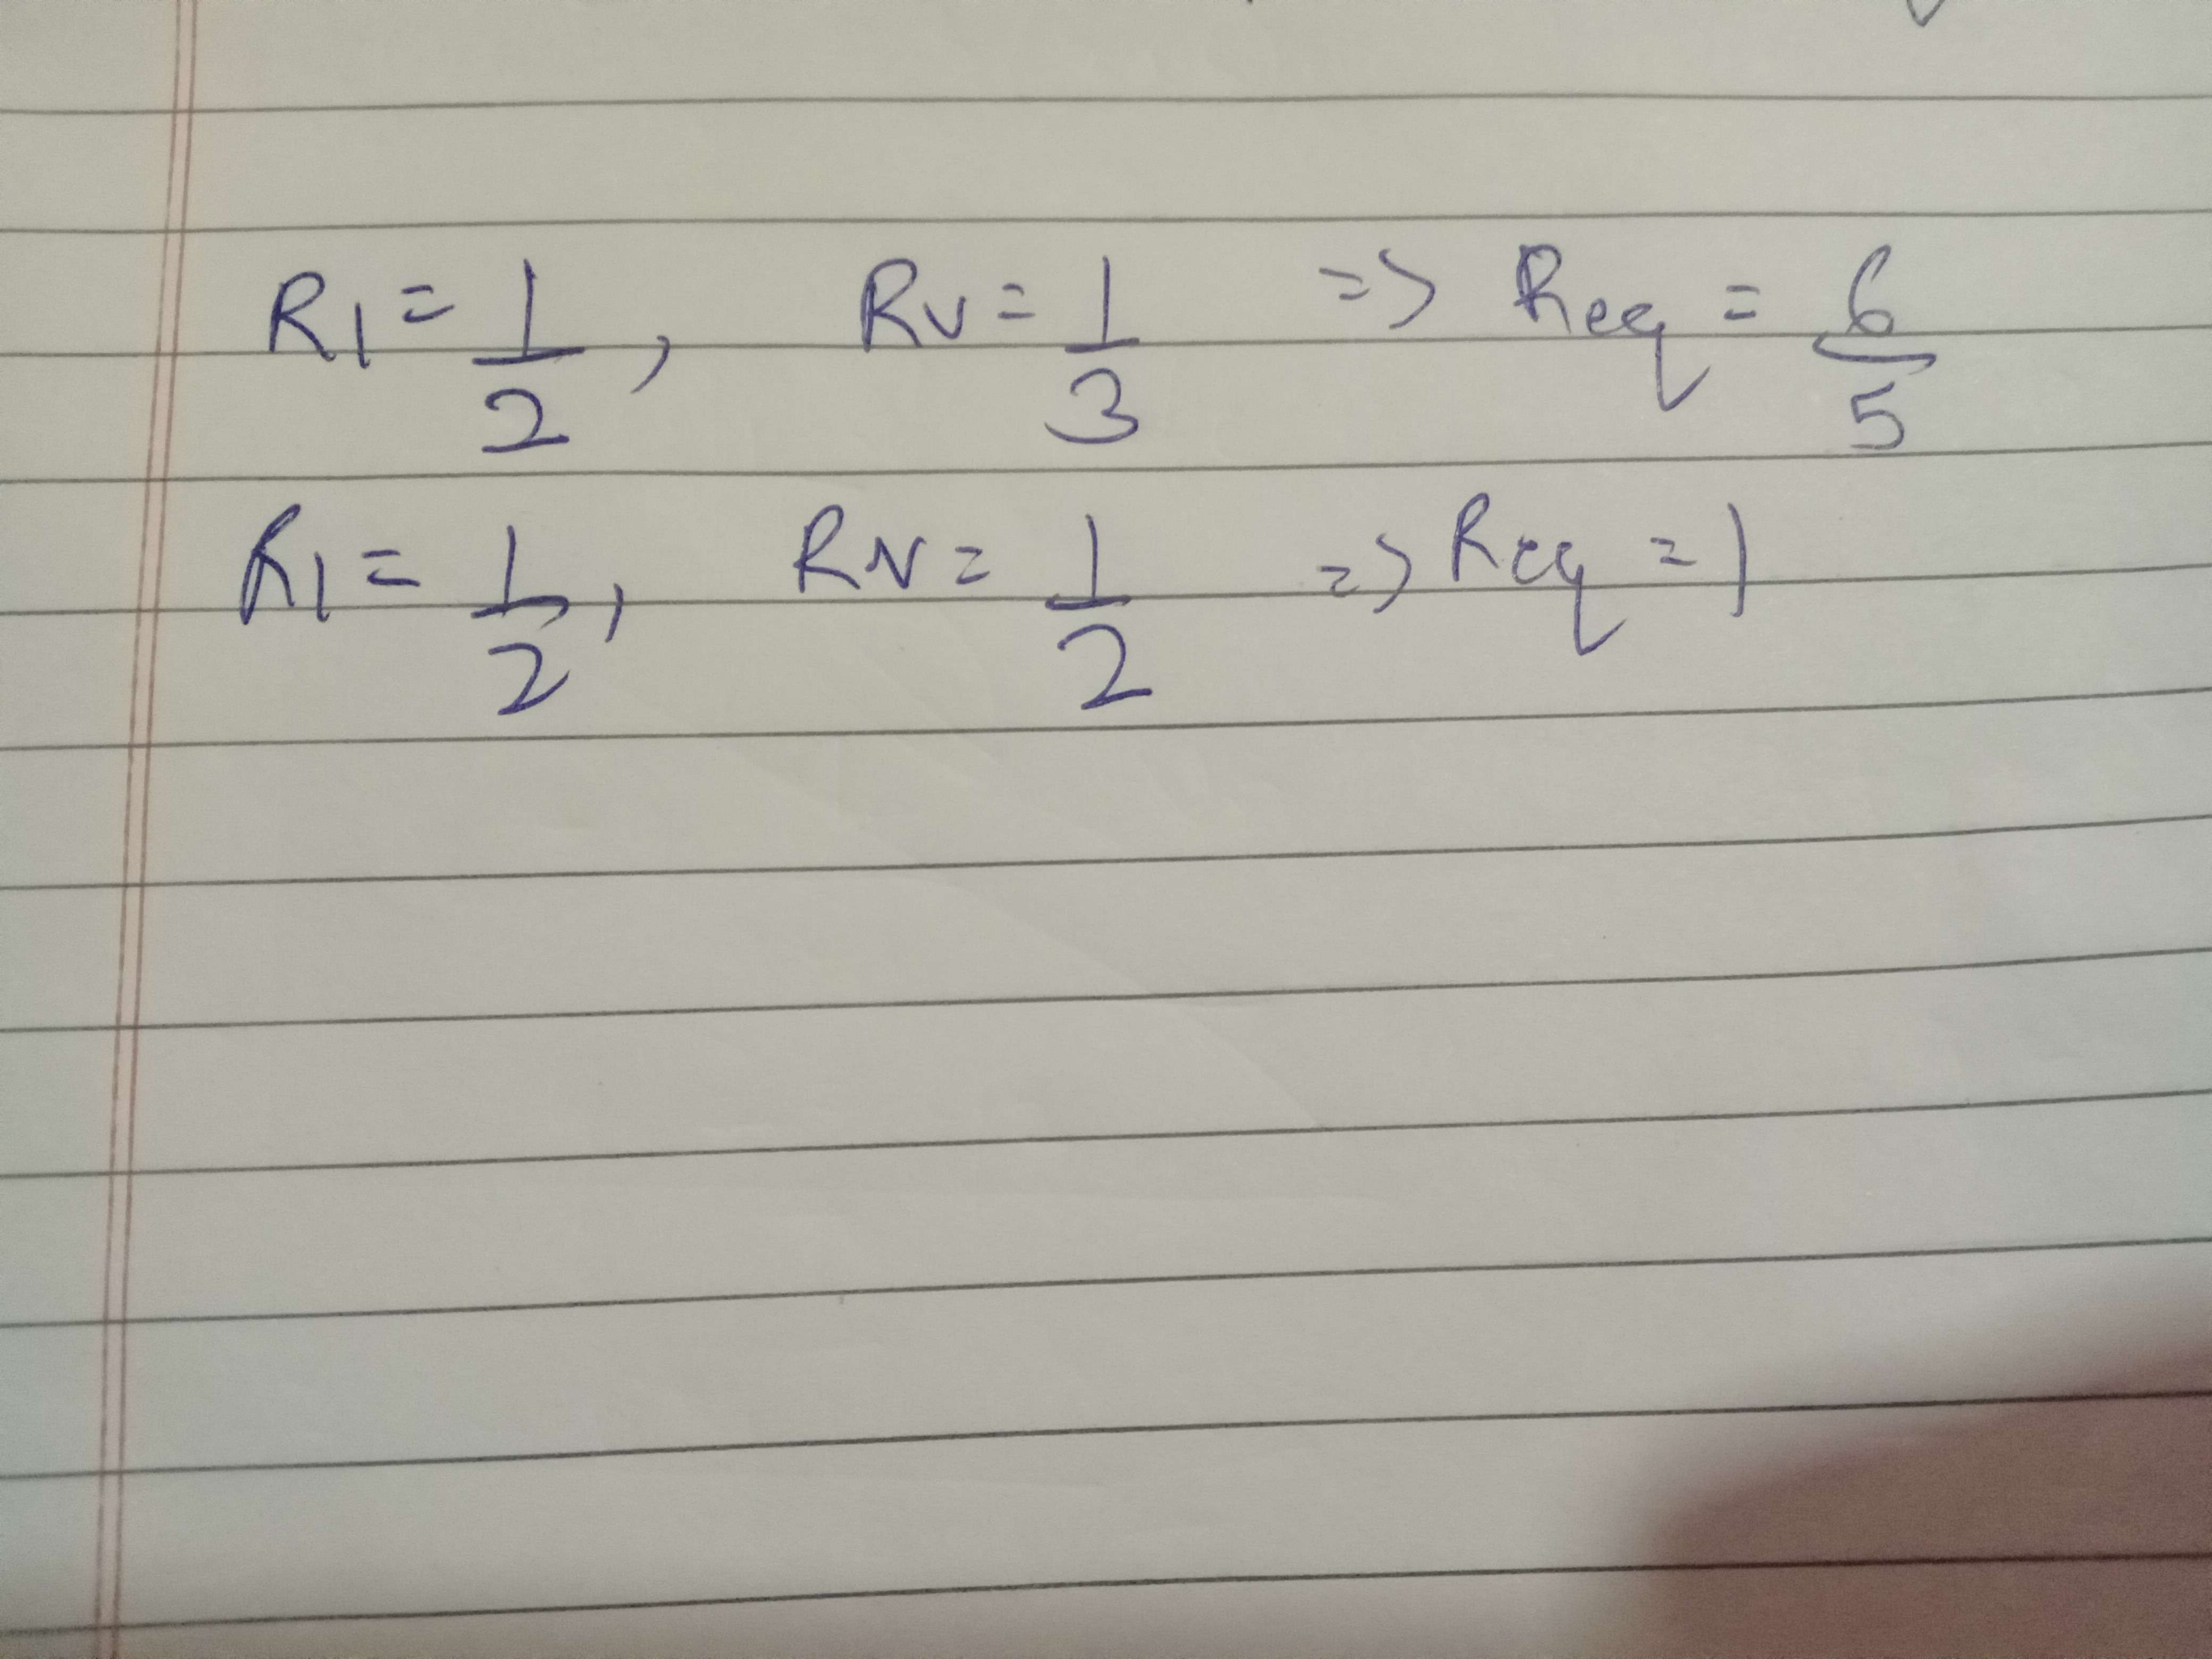 R1 = 1/2, RV = 1/3 => Req = 6/5
R1 = 1/2, RN = 1/2 => Req = 1